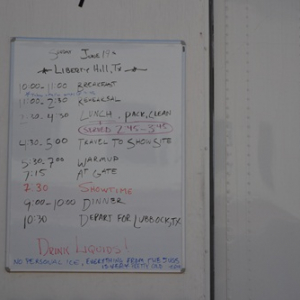 June 17th
* Liberty Hill, TX *
10:00 - 11:00 BREAKFAST
11:00 - 2:30 REHEARSAL
4:30 LUNCH, PACK, CLEAN
SERVED 2:45 - 3:45
4:30 - 5:00 TRAVEL TO SHOWSITE
5:30 - 7:00 WARMUP
7:15 AT GATE
7:30 SHOWTIME
9:00 - 10:00 DINNER
10:30 DEPART FOR LUBBOCK, TX
DRINK LIQUIDS!
NO PERSONAL ICE, EVERYTHING FROM THE JUGS